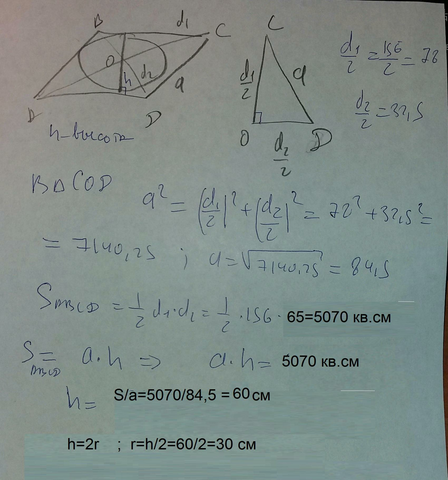 B d₁ C
O h d₂ a
D D
h-высота
C
d₁/2 a
O d₂/2 D
d₁/2 = 156/2 = 78
d₂/2 = 32,5
В Δ COD
a² = (d₁/2)² + (d₂/2)² = 78² + 32,5² =
= 7140,25 ; a = √7140,25 = 84,5
S ABCD = 1/2 d₁·d₂ = 1/2 · 156 · 65=5070 кв.см
S ABCD = a·h ⇒ a·h = 5070 кв.см
h = S/a=5070/84,5 = 60 см
h=2r ; r=h/2=60/2=30 см